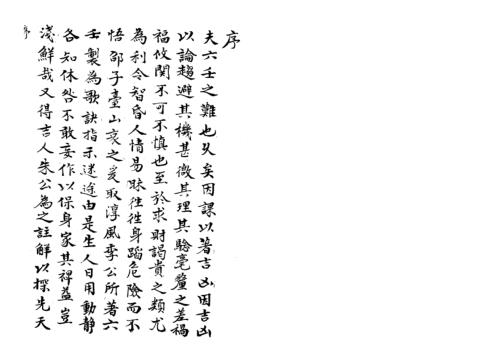 序
夫六壬之難也久矣因課以著吉凶因吉凶
以論趨避其機甚微其理其驗毫釐之差禍
福攸関不可不慎也至於求財謁貴之類尤
為利令智昏人情易昧往往身蹈危險而不
悟邵子臺山哀之爰取淳風李公所著六
壬製為歌訣指示迷途由是生人日用動靜
各知休咎不敢妄作以保身家其裨益豈
淺鮮哉又得吉人朱公為之註解以探先天
序